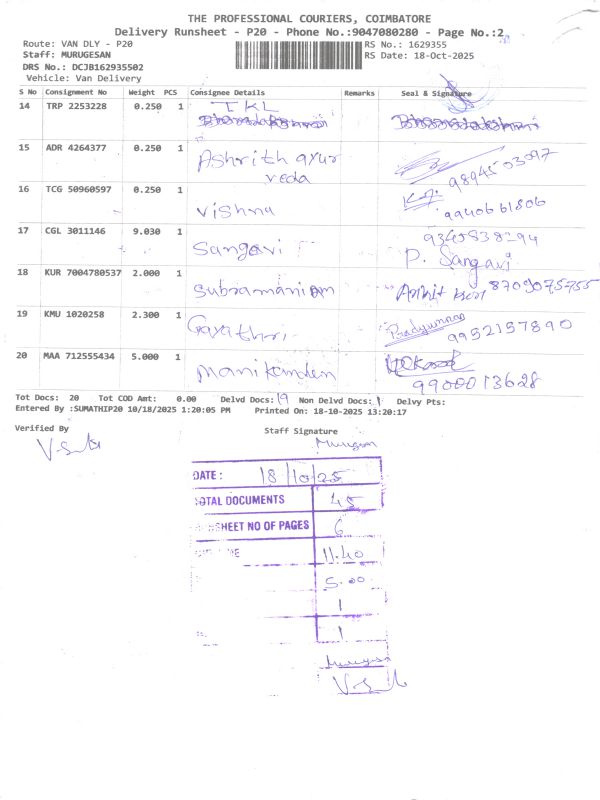 THE PROFESSIONAL COURIERS, COIMBATORE
Delivery Runsheet - P20 - Phone No.:9047080280 - Page No.:2
Route: VAN DLY - P20 RS No.: 1629355
Staff: MURUGESAN RS Date: 18-Oct-2025
DRS No.: DCJB162935502
Vehicle: Van Delivery
S No Consignment No Weight PCS Consignee Details Remarks Seal & Signature
14 TRP 2253228 0.250 1 TKL
15 ADR 4264377 0.250 1 Ashrith ayur veda 9894503097
16 TCG 50960597 0.250 1 Vishna 9940661806
17 CGL 3011146 9.030 1 Sangavi P. Sangavi
18 KUR 7004780537 2.000 1 Subramaniam 8709075755
19 KMU 1020258 2.300 1 Gayathri Pradyumnan 9952157890
20 MAA 712555434 5.000 1 Manikanden 9900013628
Tot Docs: 20 Tot COD Amt: 0.00 Delvd Docs: 19 Non Delvd Docs: 1 Delvy Pts:
Entered By :SUMATHIP20 10/18/2025 1:20:05 PM Printed On: 18-10-2025 13:20:17
Verified By Staff Signature
Murugesan
DATE: 18/10/25
TOTAL DOCUMENTS 45
SHEET NO OF PAGES 6
11.40
5.00
1
1
Murugesan